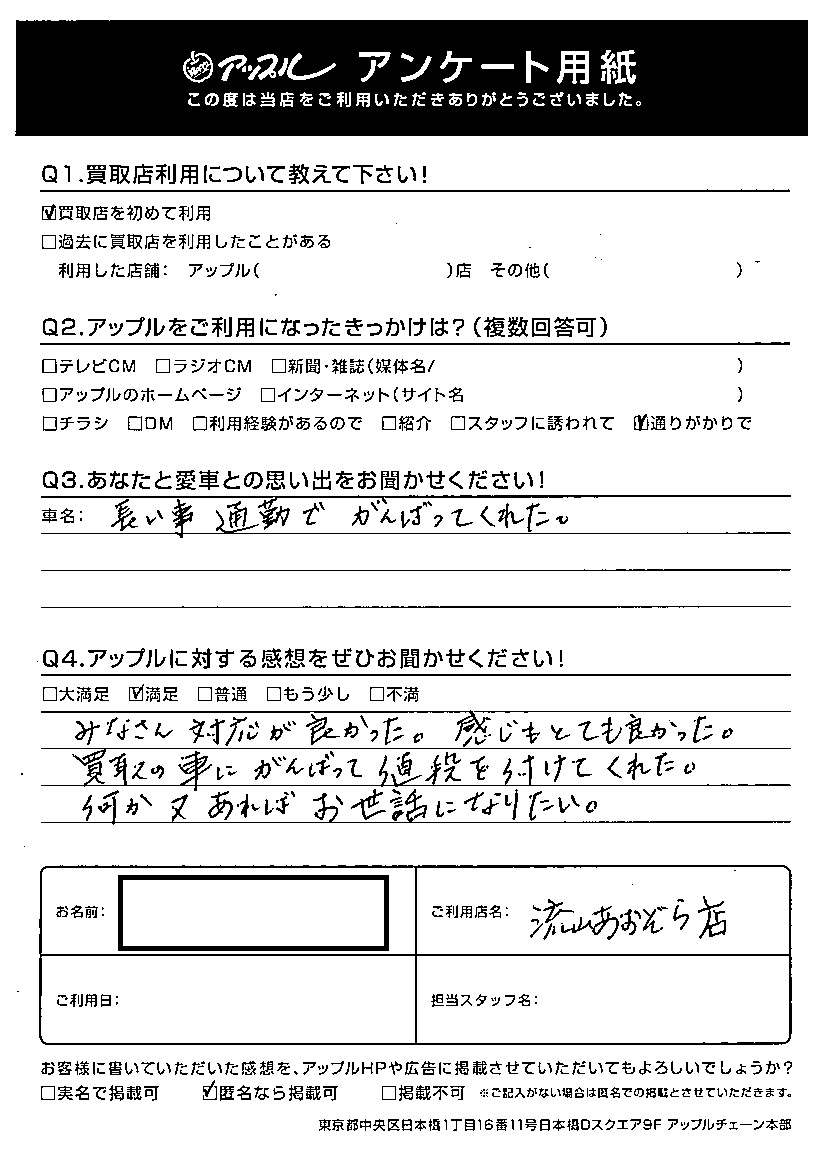 アップル アンケート用紙
この度は当店をご利用いただきありがとうございました。
Q1.買取店利用について教えて下さい!
☑買取店を初めて利用
□過去に買取店を利用したことがある
利用した店舗: アップル( )店 その他( )
Q2.アップルをご利用になったきっかけは?(複数回答可)
□テレビCM □ラジオCM □新聞・雑誌(媒体名/ )
□アップルのホームページ □インターネット(サイト名 )
□チラシ □DM □利用経験があるので □紹介 □スタッフに誘われて ☑通りがかりで
Q3.あなたと愛車との思い出をお聞かせください!
車名: 長い事 通勤で がんばってくれた。
Q4.アップルに対する感想をぜひお聞かせください!
□大満足 ☑満足 □普通 □もう少し □不満
みなさん 対応が良かった。 感じもとても良かった。
買取の車に がんばって 値段を付けてくれた。
何か又あればお世話になりたい。
お名前: ご利用店名: 流山あおぞら店
ご利用日: 担当スタッフ名:
お客様に書いていただいた感想を、アップルHPや広告に掲載させていただいてもよろしいでしょうか?
□実名で掲載可 ☑匿名なら掲載可 □掲載不可 ※ご記入がない場合は匿名での掲載とさせていただきます。
東京都中央区日本橋1丁目16番11号日本橋Dスクエア9F アップルチェーン本部